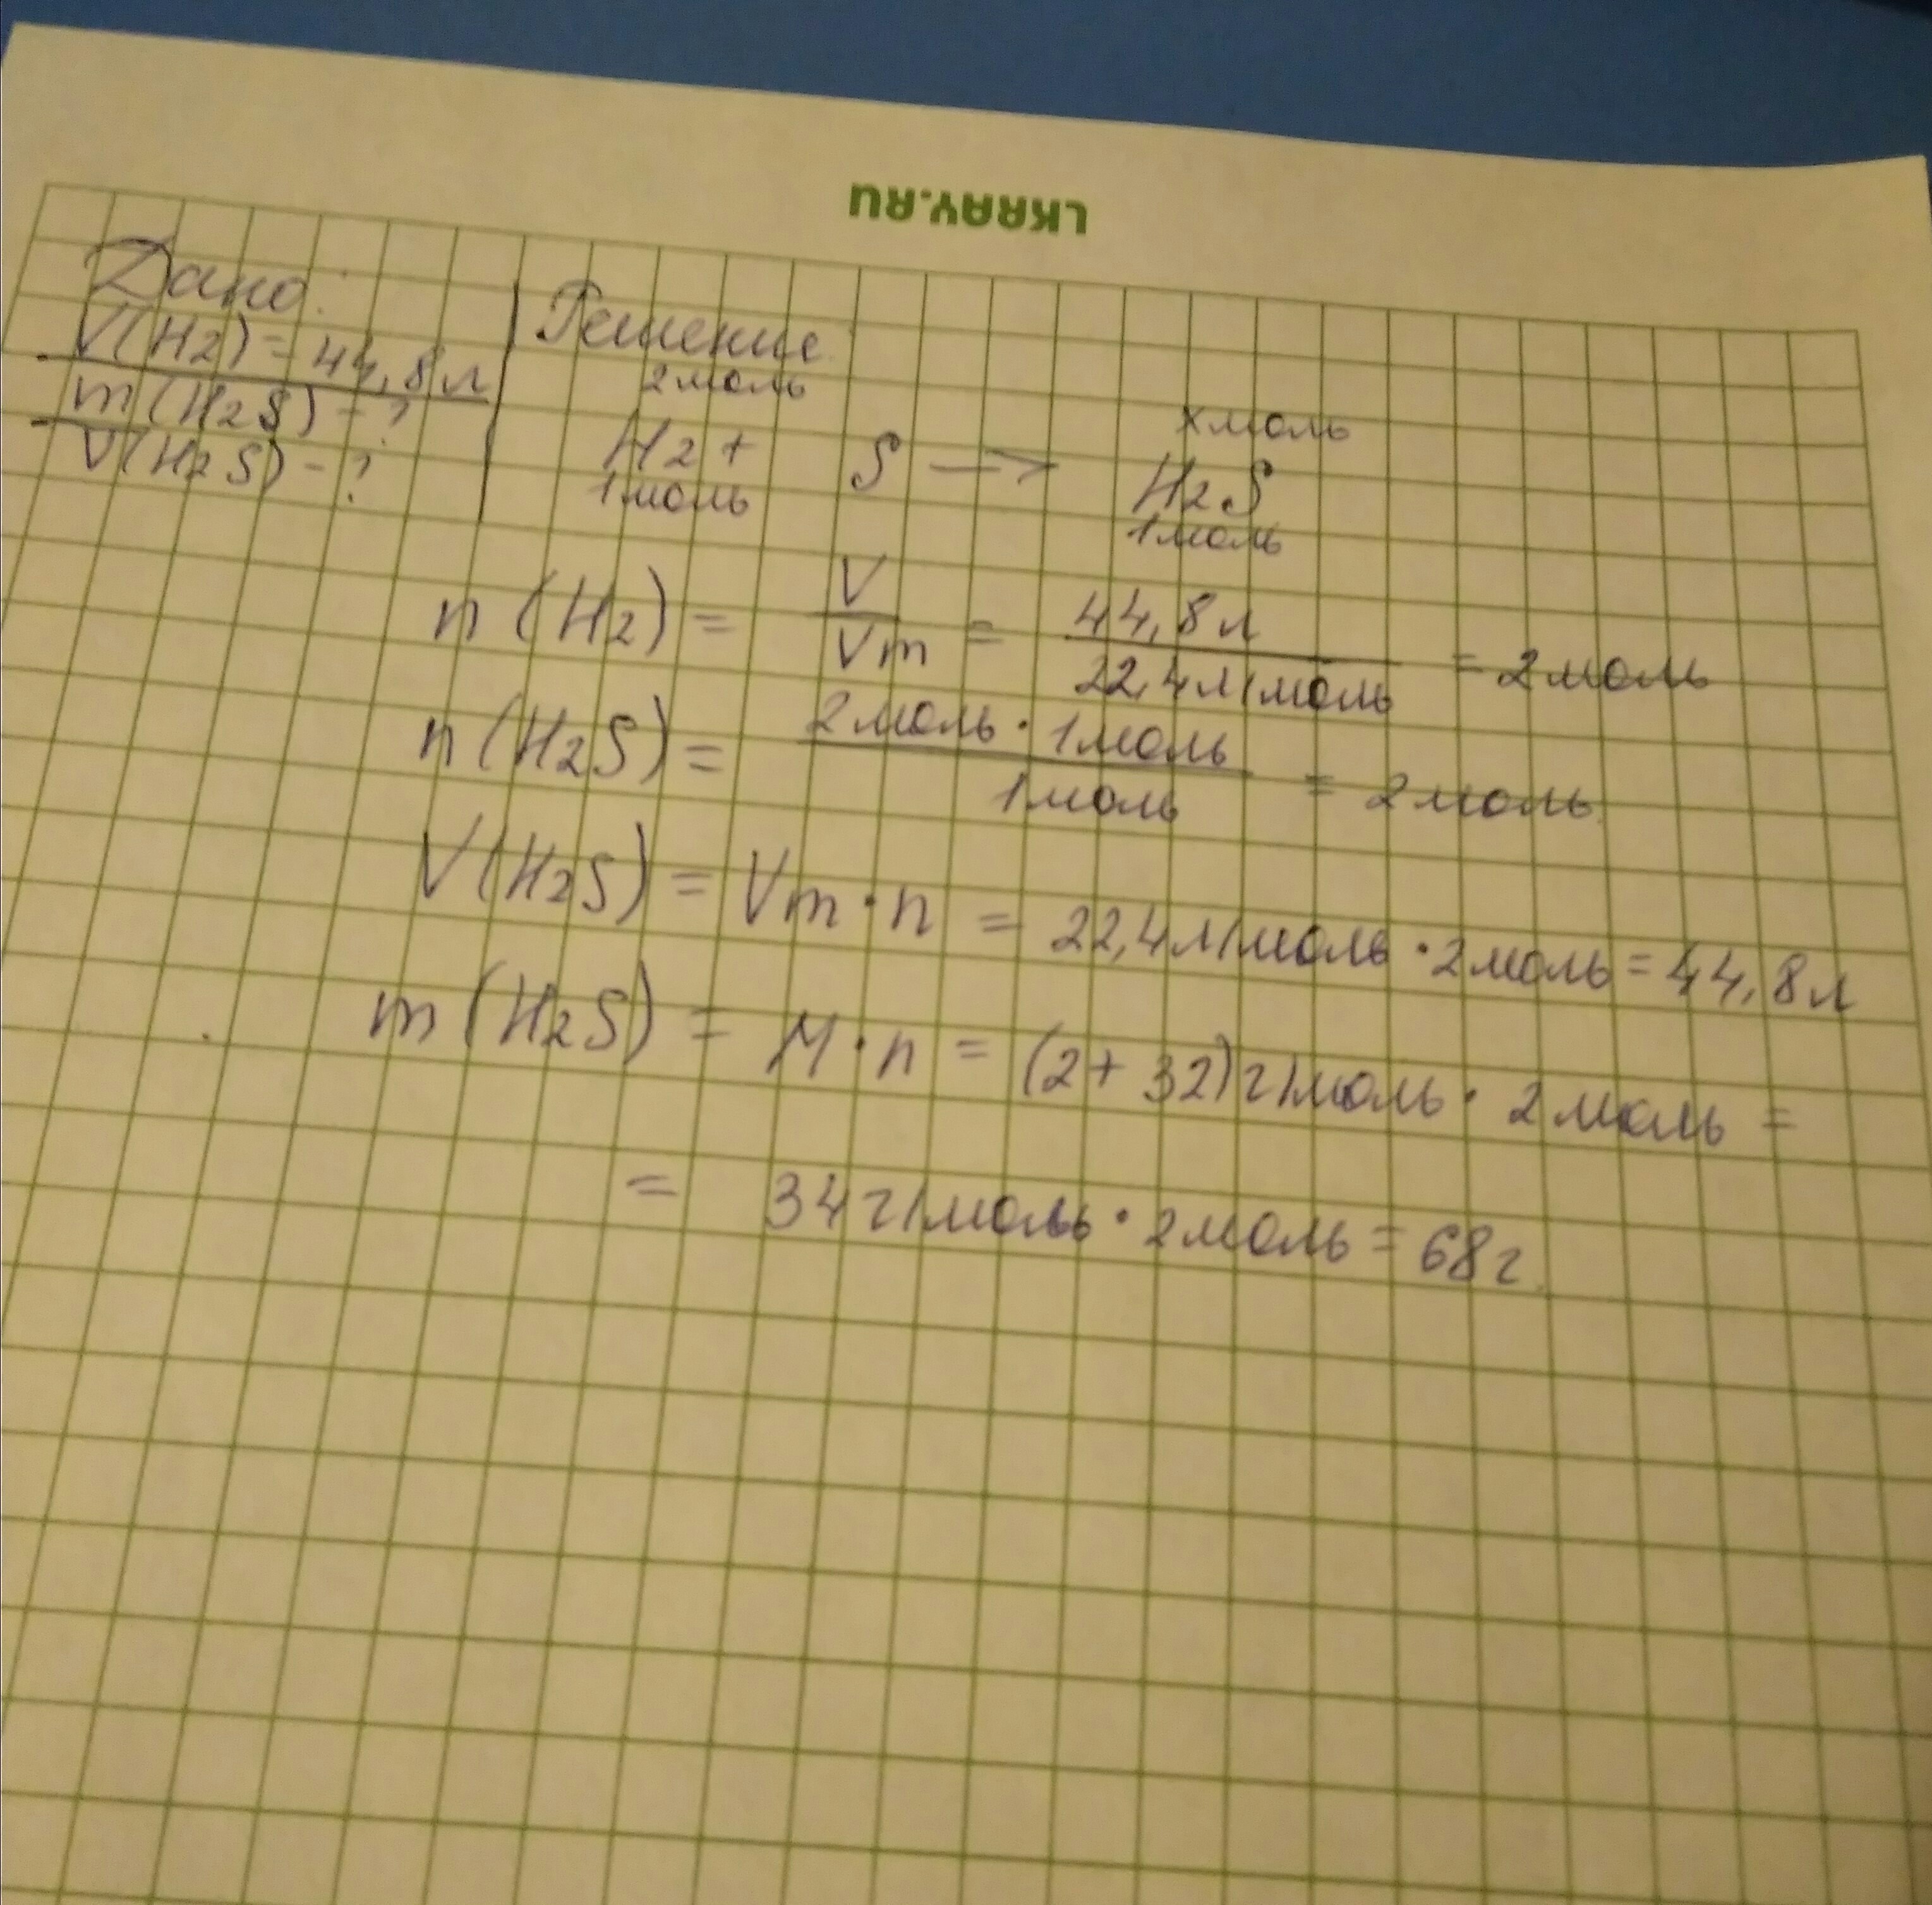 LKRAY.RU
Дано:
V(H2) = 44,8 л
m(H2S) - ?
V(H2S) - ?
Решение
2моль xмоль
H2 + S —> H2S
1моль 1моль
n (H2) = V/Vm = 44,8 л / 22,4 л/моль = 2 моль
n (H2S) = 2 моль · 1 моль / 1 моль = 2 моль.
V(H2S) = Vm · n = 22,4 л/моль · 2 моль = 44,8 л
m (H2S) = M · n = (2 + 32) г/моль · 2 моль =
= 34 г/моль · 2 моль = 68 г.